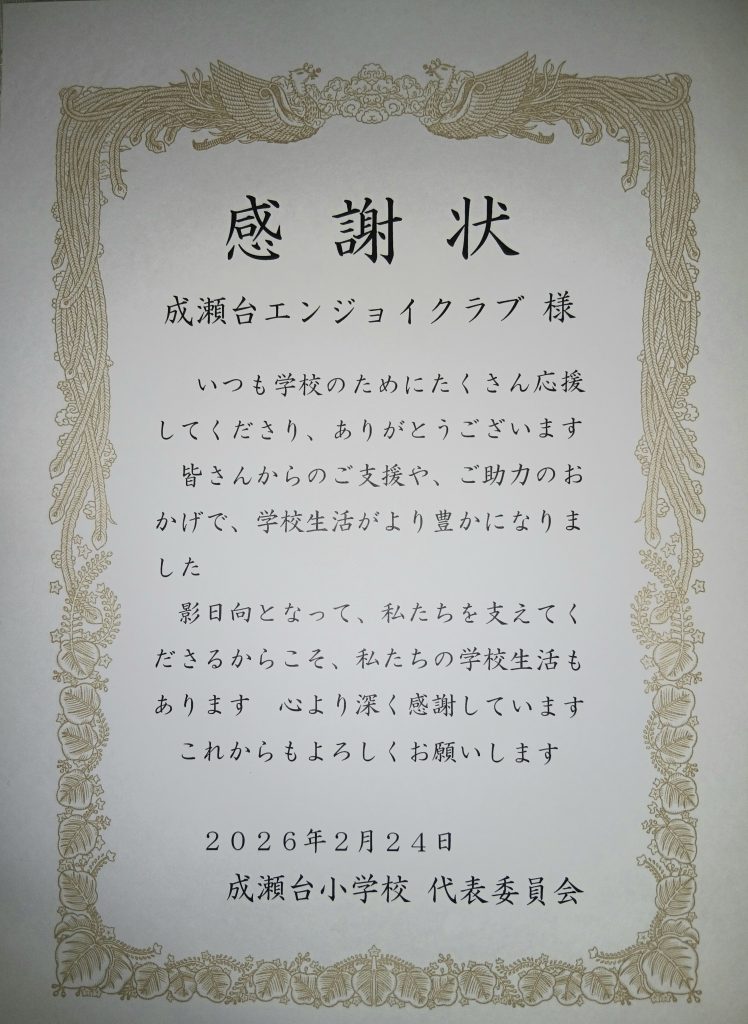 感謝状
成瀬台エンジョイクラブ 様
いつも学校のためにたくさん応援
してくださり、ありがとうございます
皆さんからのご支援や、ご助力のお
かげで、学校生活がより豊かになりま
した
影日向となって、私たちを支えてく
ださるからこそ、私たちの学校生活も
あります　心より深く感謝しています
これからもよろしくお願いします
２０２６年２月２４日
成瀬台小学校 代表委員会